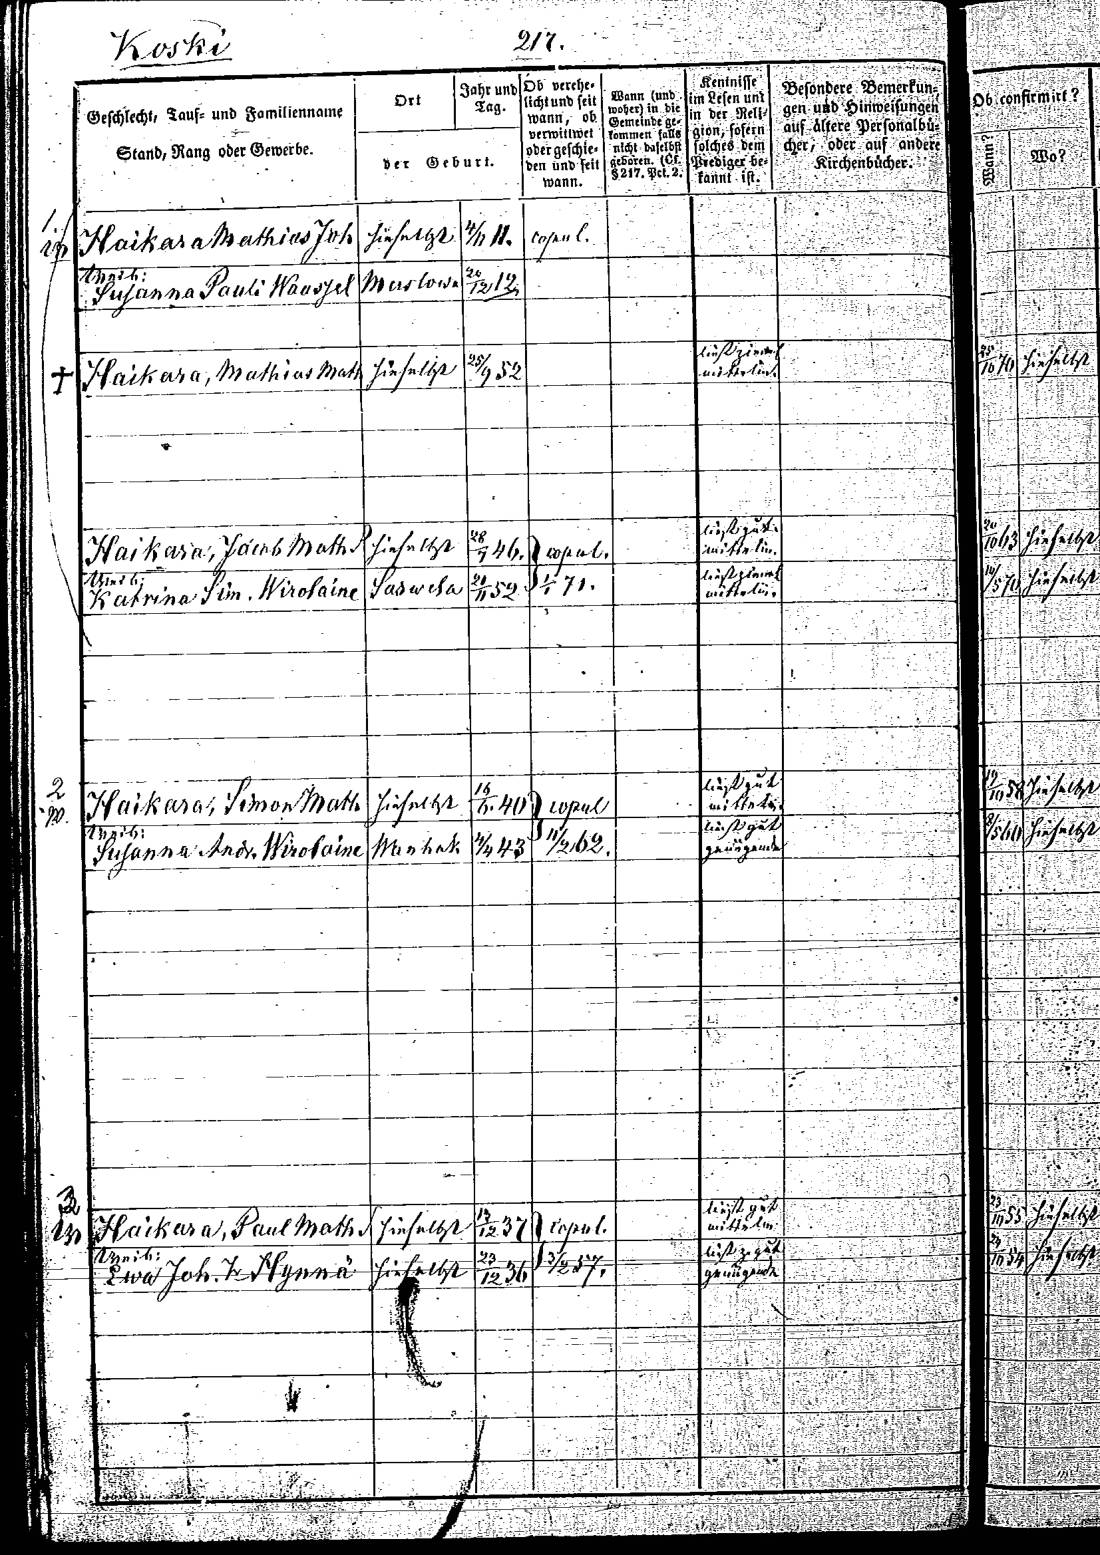 Koski 217.
Geschlecht, Tauf- und Familienname
Stand, Rang oder Gewerbe.
Ort
der Geburt.
Jahr und
Tag.
Ob verehe-
licht und seit
wann, ob
verwittwet
oder geschie-
den und seit
wann.
Wann (und
woher) in die
Gemeinde ge-
kommen falls
nicht daselbst
geboren. (Cf.
§ 217. Pct. 2.
Kentnisse
im Lesen und
in der Reli-
gion, sofern
solches dem
Prediger be-
kannt ist.
Besondere Bemerkun-
gen und Hinweisungen
auf ältere Personalbü-
cher, oder auf andere
Kirchenbücher.
Ob confirmirt?
Wann? Wo?
1.
Haikara Mathias Joh hieselbst 11. copul.
Weib:
Susanna Pauli Maslowa 20/12 12
liest ziemel
† Haikara, Mathias Math hieselbst 25/9 52 mittelm. 25/10 70 hieselbst
liest gut
Haikara, Jacob Math. hieselbst 46. copul. mittelm. 20/10 63 hieselbst
Weib: liest ziemel
Katrina Sim. Wirolaine Saswela 20/11 52 1/1 71. mittelm. 70 hieselbst
2 liest gut
Haikara, Simon Math hieselbst 40 copul mittelm. 19/10 58 hieselbst
Weib: liest gut
Susanna Andr. Wirolaine 43 11/2 62. genügende 60 hieselbst
3 liest gut
Haikara, Paul Math. hieselbst 12/12 37 copul. mittelm 23/10 55 hieselbst
Weib: liest z. gut
Ewa Joh. Hynnä hieselbst 23/12 36 3/2 57. genügende 54 hieselbst